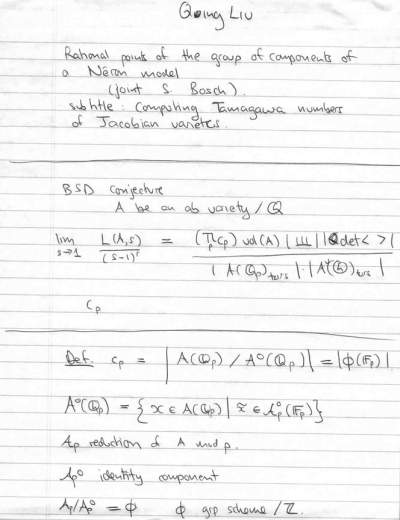 Qing Liu
Rational points of the group of components of
a Néron model
(joint S. Bosch).
subtitle: Computing Tamagawa numbers
of Jacobian varieties.
BSD Conjecture
A be an ab variety / ℚ
lim s→1 L(A,s) / (s-1)^r = (∏_p c_p) vol(A) |Ш| |det< >| / |A(ℚ_p)_tors| · |A^t(ℚ)_tors|
c_p
Def. c_p = |A(ℚ_p) / A°(ℚ_p)| = |ϕ(𝔽_p)|
A°(ℚ_p) = {x ∈ A(ℚ_p) | x̃ ∈ A_p°(𝔽_p)}
A_p reduction of A mod p.
A_p° identity component
A_p/A_p° = ϕ ϕ grp scheme / ℤ.